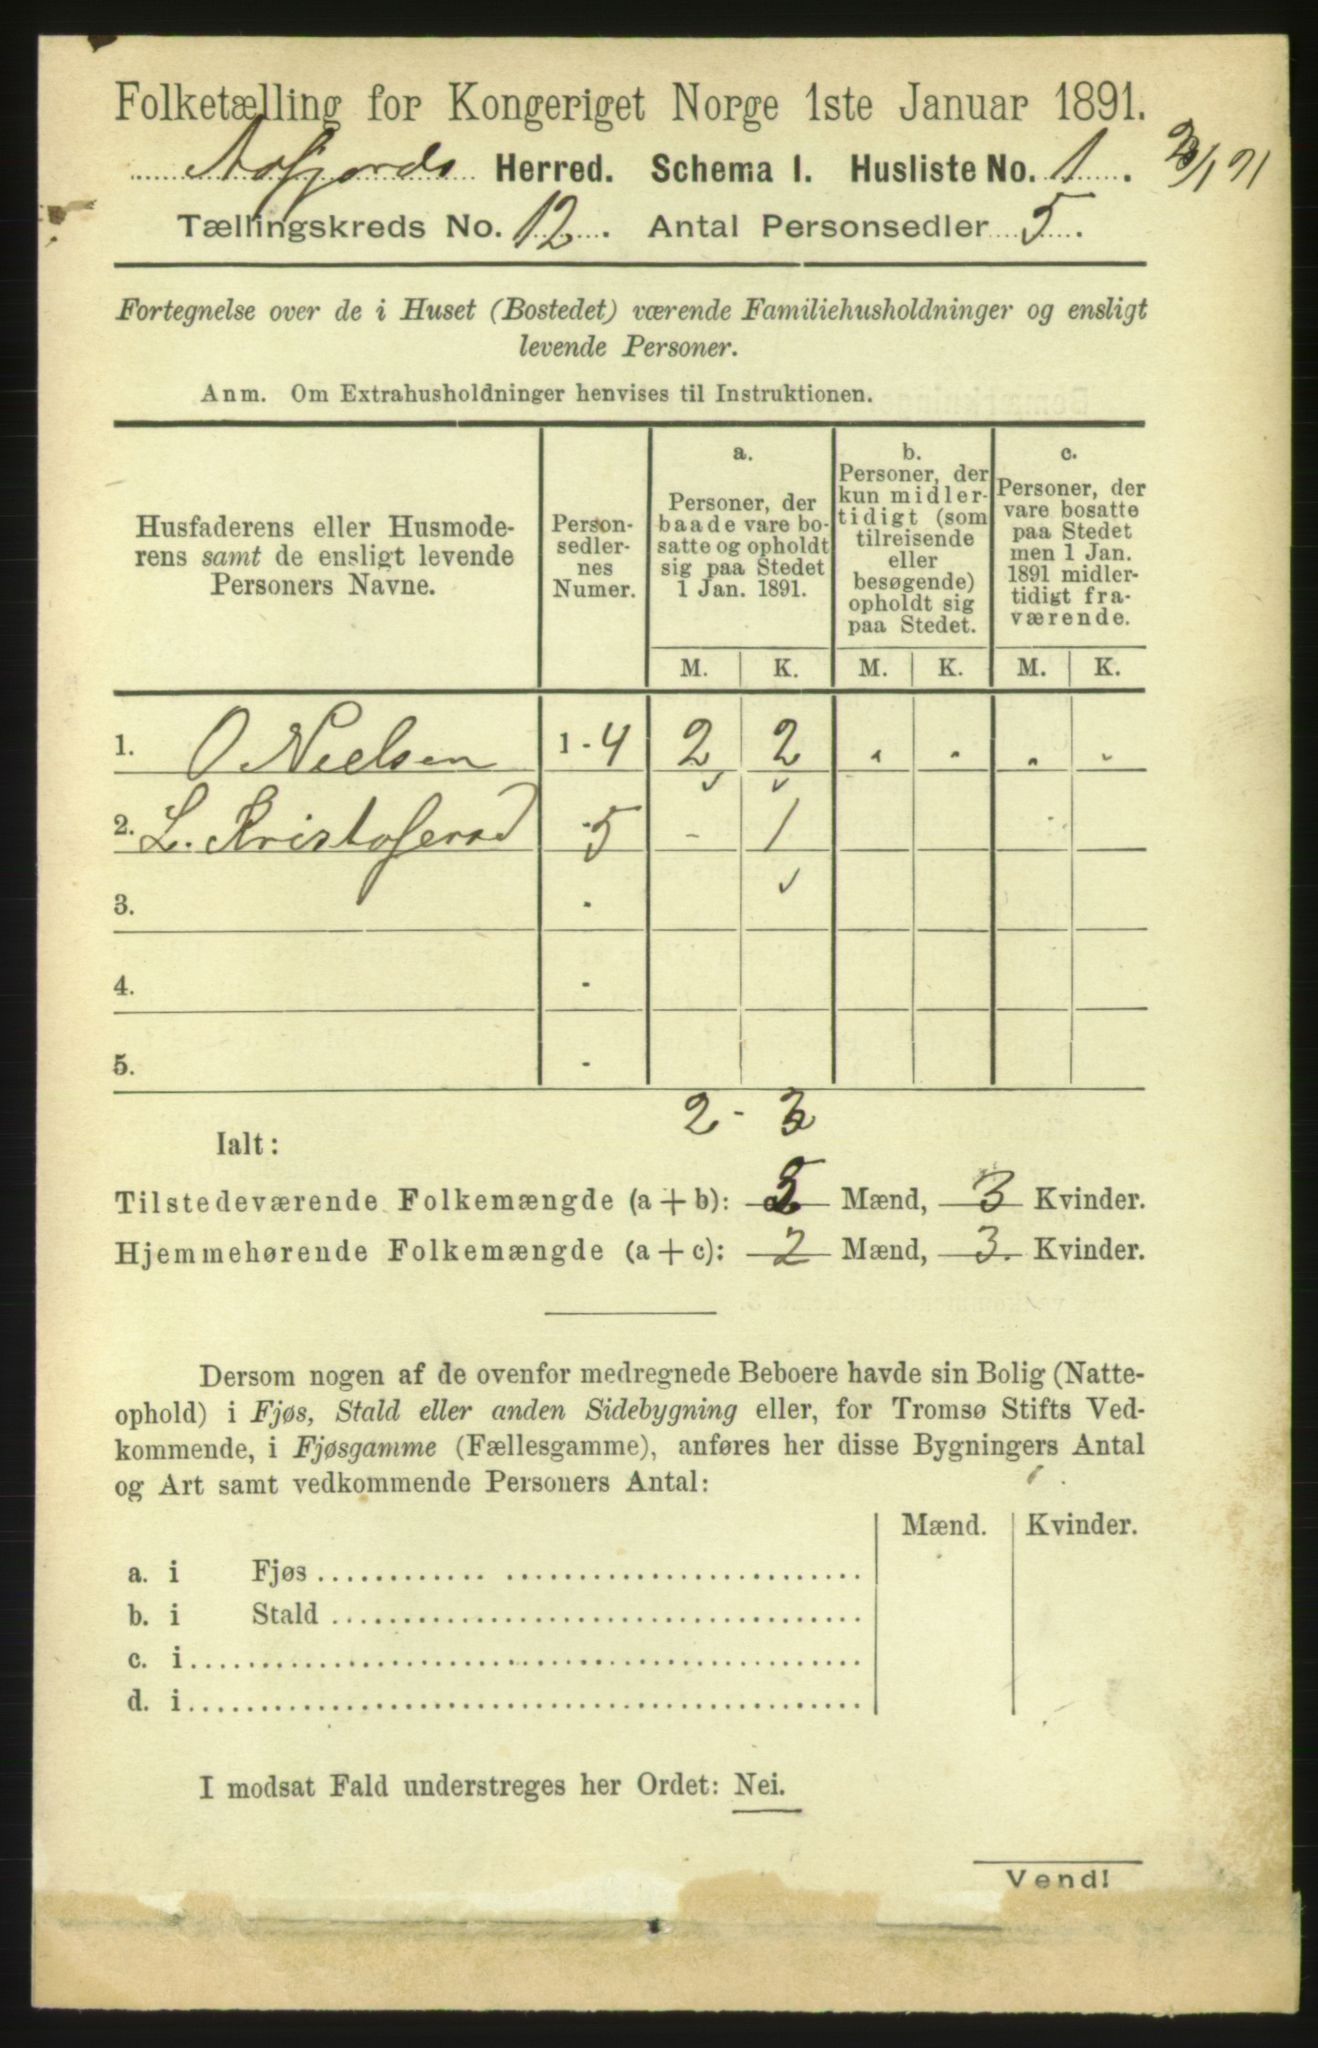 Folketælling for Kongeriget Norge 1ste Januar 1891.
Aafjords Herred. Schema I. Husliste No. 1.
Tællingskreds No. 12. Antal Personsedler 5.
Fortegnelse over de i Huset (Bostedet) værende Familiehusholdninger og ensligt
levende Personer.
Anm. Om Extrahusholdninger henvises til Instruktionen.
Husfaderens eller Husmode-
rens samt de ensligt levende
Personers Navne.
Person-
sedler-
nes
Numer.
a.
Personer, der
baade vare bo-
satte og opholdt
sig paa Stedet
1 Jan. 1891.
b.
Personer, der
kun midler-
tidigt (som
tilreisende
eller
besøgende)
opholdt sig
paa Stedet.
c.
Personer, der
vare bosatte
paa Stedet
men 1 Jan.
1891 midler-
tidigt fra-
værende.
M. K. M. K. M. K.
1. O Nielsen 1 - 4 2 2 . . . .
2. L. Kristofersd 5 - 1
3. -
4. -
5. -
2 - 3
Ialt:
Tilstedeværende Folkemængde (a + b): 2 Mænd, 3 Kvinder.
Hjemmehørende Folkemængde (a + c): 2 Mænd, 3. Kvinder.
Dersom nogen af de ovenfor medregnede Beboere havde sin Bolig (Natte-
ophold) i Fjøs, Stald eller anden Sidebygning eller, for Tromsø Stifts Ved-
kommende, i Fjøsgamme (Fællesgamme), anføres her disse Bygningers Antal
og Art samt vedkommende Personers Antal:
Mænd. Kvinder.
a. i Fjøs
b. i Stald
c. i
d. i
I modsat Fald understreges her Ordet: Nei.
Vend!